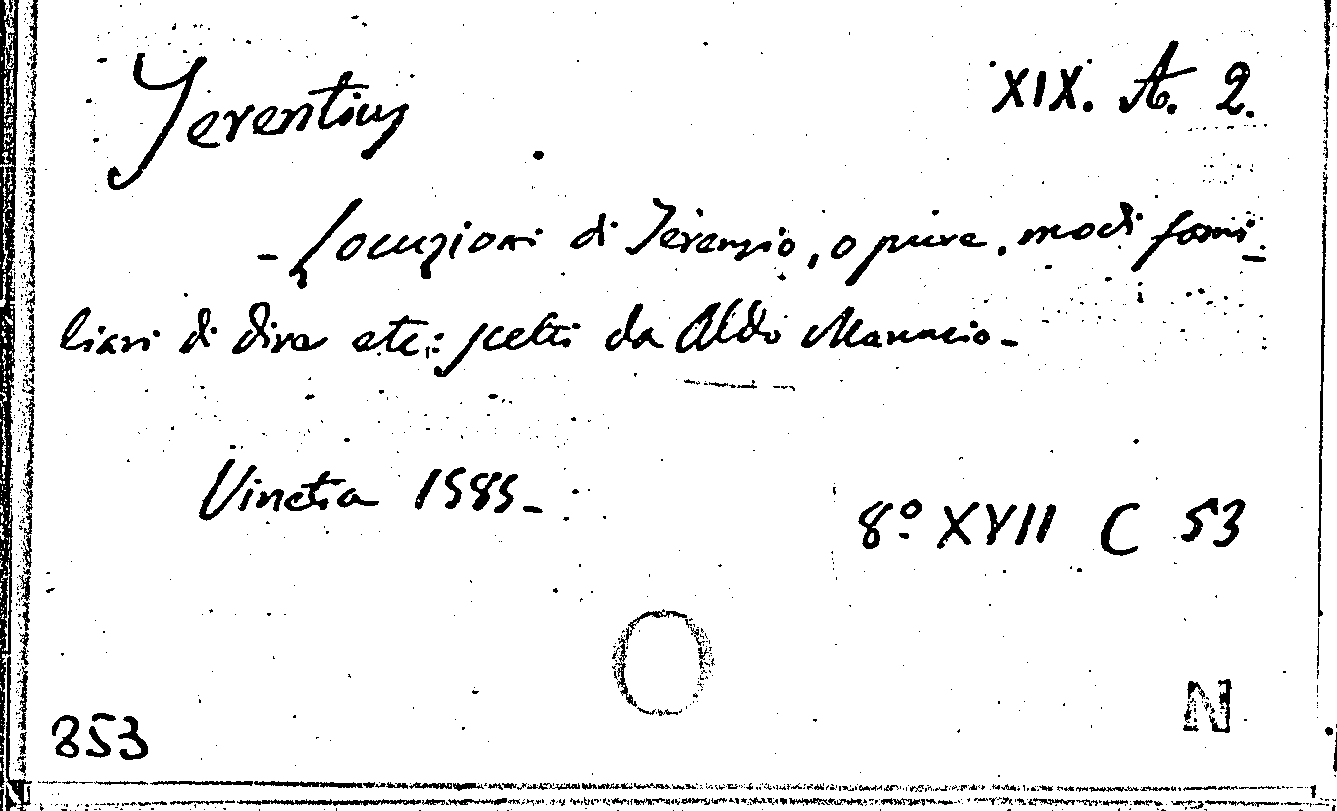 Terentius XIX. A. 2.
- Locuzioni di Terenzio, o pure, modi fami-
liari di dire etc: scelti da Aldo Manucio -
Vinetia 1585 -
8º XVII C 53
N
853